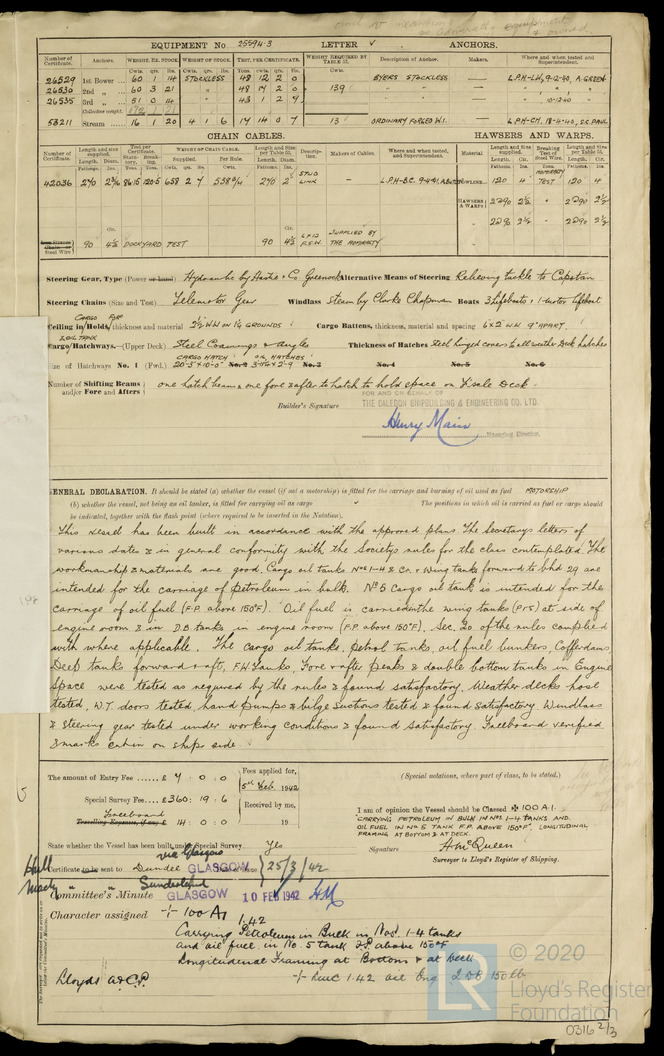 EQUIPMENT No. 25594·3 LETTER ✓ ANCHORS.
Number of Certificate. Anchors. WEIGHT, EX. STOCK. WEIGHT OF STOCK. TEST, PER CERTIFICATE. WEIGHT REQUIRED BY TABLE 53. Description of Anchor. Makers. Where and when tested and Superintendent.
Cwts. qrs. lbs. Cwts. qrs. lbs. Tons. cwts. qrs. lbs. Cwts.
26529 1st Bower ... 60 1 14 STOCKLESS 48 12 2 0 BYERS STOCKLESS — L.P.H-LH, 9-2-40, A. GREEN
26530 2nd " ... 60 3 21 48 17 2 0 139 " " "
26535 3rd " ... 51 0 14 43 1 2 7 " 10-12-40 "
Collective weight.
53211 Stream ... 16 1 20 4 1 6 17 14 0 7 13 ORDINARY FORGED W.I. — L.P.H-CH, 18-4-40, S.C. PAUL
CHAIN CABLES. HAWSERS AND WARPS.
Number of Certificate. Length and size supplied. Test per Certificate. WEIGHT OF CHAIN CABLE. Length and Size per Table 53. Description. Makers of Cables. Where and when tested, and Superintendent. Material Length and Size supplied. Breaking Test of Steel Wire. Length and Size per Table 53.
Length. Diam. Statutory. Breaking. Supplied. Per Rule. Length. Diam. Length. Cir. Length. Cir.
42036 270 2 3/16 86·15 120·5 658 2 7 538 270 2 STUD LINK — L.P.H-B.C. 9-4-41 TOWLINE 120 4 ADMIRALTY TEST 120 4
HAWSERS & WARPS 2@90 2½ " 2@90 2½
" 2@90 2½ " 2@90 2½
Steel Wire 90 4½ DOCKYARD TEST 90 4½ 6×12 F.S.W. SUPPLIED BY THE ADMIRALTY
Steering Gear, Type (Power or hand) Hydraulic by Hastie & Co. Greenock Alternative Means of Steering Relieving tackle to Capstan
Steering Chains (Size and Test) Telemotor Gear Windlass Steam by Clarke Chapman Boats 3 Lifeboats & 1 motor lifeboat
Ceiling in CARGO Holds, thickness and material 2½" W.W. on 1¼ GROUNDS Cargo Battens, thickness, material and spacing 6×2 W.W. 9" APART.
Cargo/OIL TANK Hatchways.—(Upper Deck) Steel Coamings & angles Thickness of Hatches Steel hinged covers to all weather Deck hatches
CARGO HATCH OIL HATCHES
Size of Hatchways No. 1 (Fwd.) 20'-5"×10'-0" No. 2 3'-4"×2'-9 No. 3 No. 4 No. 5 No. 6
Number of Shifting Beams and/or Fore and Afters one hatch beam & one fore & after to hatch to hold space on Deck.
Builder's Signature
FOR AND ON BEHALF OF
THE CALEDON SHIPBUILDING & ENGINEERING CO. LTD.
Henry Main
Managing Director.
GENERAL DECLARATION. It should be stated (a) whether the vessel (if not a motorship) is fitted for the carriage and burning of oil used as fuel MOTORSHIP
(b) whether the vessel, not being an oil tanker, is fitted for carrying oil as cargo ✓ The positions in which oil is carried as fuel or cargo should
be indicated, together with the flash point (where required to be inserted in the Notation).
This vessel has been built in accordance with the approved plans The Secretarys letters of
various dates & in general conformity with the Societys rules for the class contemplated. The
workmanship & materials are good. Cargo oil tanks Nos 1-4 & Cr. & Wing tanks forward to bhd 29 are
intended for the carriage of petroleum in bulk. No 5 Cargo oil tank is intended for the
carriage of oil fuel (F.P. above 150°F). Oil fuel is carried in the wing tanks (P & S) at side of
engine room & in D.B. tanks in engine room (F.P. above 150°F), Sec. 20 of the rules complied
with where applicable. The cargo oil tanks, petrol tanks, oil fuel bunkers, Cofferdams,
Deep tanks forward & aft, F.W. Tanks, Fore & after peaks & double bottom tanks in Engine
Space were tested as required by the rules & found satisfactory. Weather decks hose
tested, W.T. doors tested, hand pumps & bilge suctions tested & found satisfactory. Windlass
& Steering gear tested under working conditions & found satisfactory. Freeboard verified
& marks cut in on ships side.
The amount of Entry Fee ...... £ 7 : 0 : 0
Fees applied for, 5th Feb. 1942
(Special notations, where part of class, to be stated.)
Special Survey Fee..... £ 360 : 19 : 6
Received by me,
Freeboard
Travelling Expenses, if any £ 14 : 0 : 0 19
I am of opinion the Vessel should be Classed ✠ 100 A.1.
"CARRYING PETROLEUM IN BULK IN NOS. 1-4 TANKS AND
OIL FUEL IN No 5 TANK F.P. ABOVE 150°F", LONGITUDINAL
FRAMING AT BOTTOM & AT DECK.
State whether the Vessel has been built under Special Survey. Yes
Signature H McQueen
Surveyor to Lloyd's Register of Shipping.
via Glasgow
Hull Certificate to be sent to Dundee GLASGOW 25/3/42
Mchy " " Sunderland
Committee's Minute GLASGOW 10 FEB 1942
Character assigned + 100 A1
1.42
Carrying Petroleum in Bulk in Nos. 1-4 tanks
and oil fuel in No. 5 tank F.P. above 150°F
Longitudinal Framing at Bottom & at Deck
Lloyds A.&C.P. + LMC 1.42 Oil Eng. 2DB 150 lb
© 2020
LR
Lloyd's Register
Foundation
0316 2/3